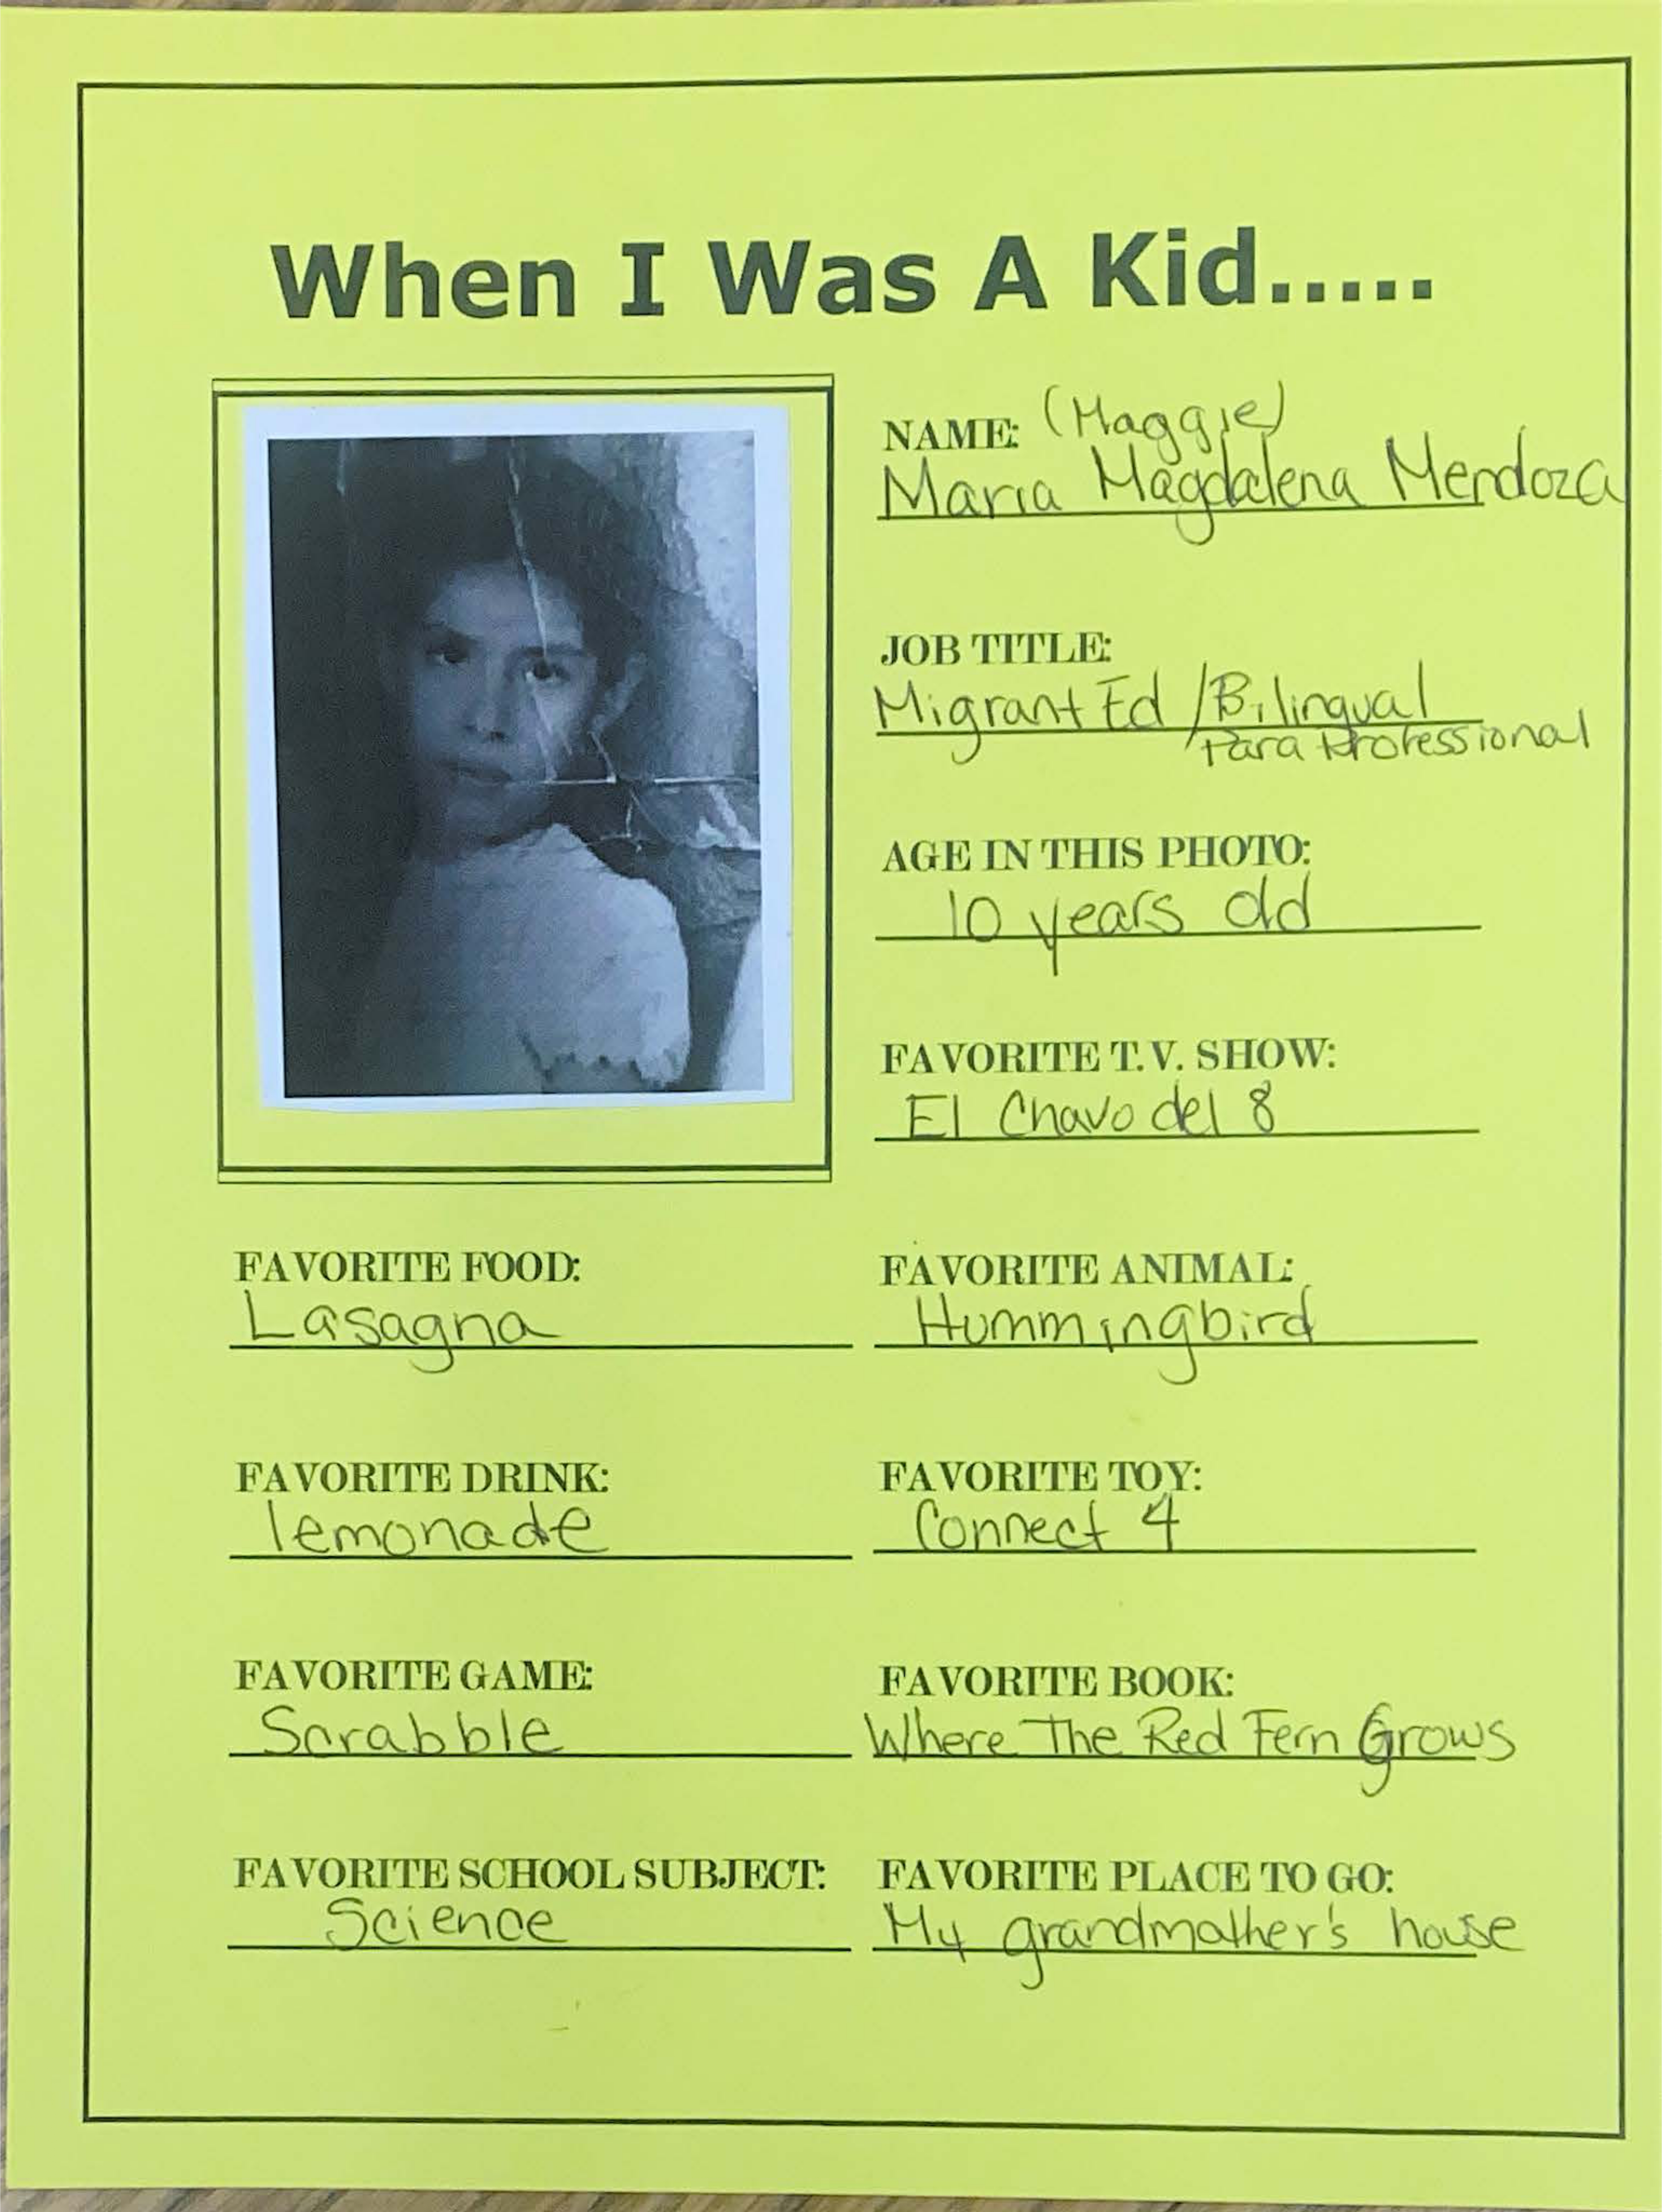 When I Was A Kid.....
NAME: (Maggie)
Maria Magdalena Mendoza
JOB TITLE:
Migrant Ed / Bilingual
Para Professional
AGE IN THIS PHOTO:
10 years old
FAVORITE T.V. SHOW:
El Chavo del 8
FAVORITE FOOD:
Lasagna
FAVORITE ANIMAL:
Hummingbird
FAVORITE DRINK:
lemonade
FAVORITE TOY:
Connect 4
FAVORITE GAME:
Scrabble
FAVORITE BOOK:
Where The Red Fern Grows
FAVORITE SCHOOL SUBJECT:
Science
FAVORITE PLACE TO GO:
My grandmather's house